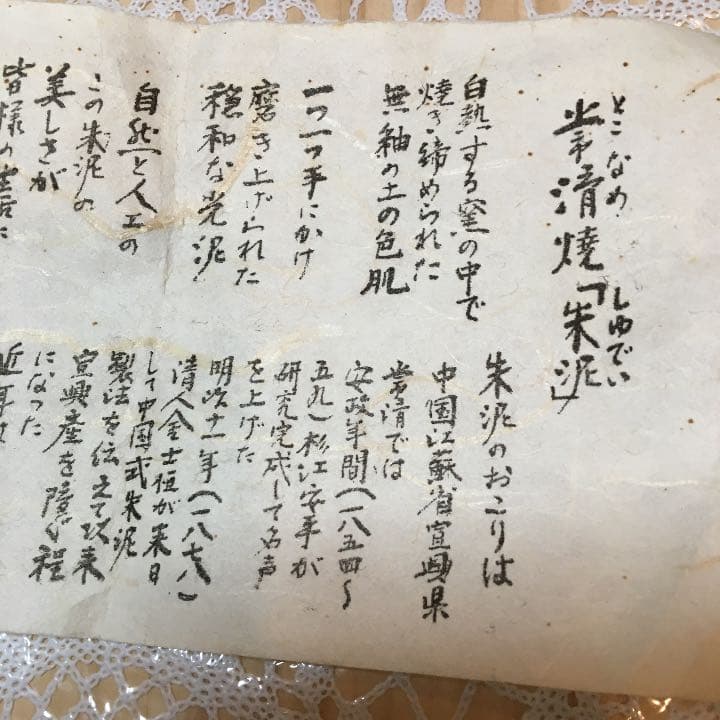 とこなめ しゅでい
常滑焼「朱泥」
白熱する窯の中で
焼き締められた
無釉の土の色肌
一つ一つ手にかけ
磨き上げられた
穏和な光泥
自然と人工の
この朱泥の
美しさが
皆様の
朱泥のおこりは
中国江蘇省宣興県
常滑では
安政年間(一八五四〜
五九)杉江安平が
研究完成して名声
を上げた
明治十一年(一八七八)
清人金士恒が来日
して中国式朱泥
製法を伝えて以来
宣興産を障ぐ程
になった
近年は